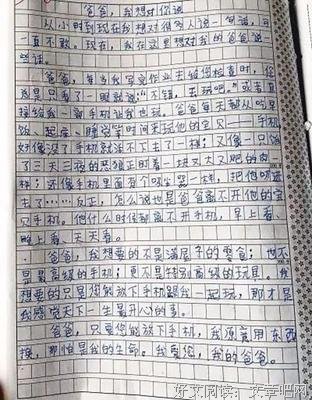 爸爸，我想对你说
从小时到现在我想对很多人说一句话，可一
直不敢。现在，我在这里想对我的爸爸说
些话。
爸爸，每当我写完作业去给您检查时，您
总是只看了一眼就说：“不错，去玩吧。”或者直
接给我一部手机让我也玩。爸爸每天都从吃早
饭、起床、睡觉等时间里玩他的宝贝——手机，
好像没了手机就活不下去了一样；又像一只饿
了三天三夜的恶狼正盯着一块又大又肥的肉
一样；还像手机里面有个吸尘器一样，把他吸进
去了……反正，怎么说也是爸爸离不开他的宝
贝手机。他什么时候都离不开手机，早上看、
晚上看、天天看。
爸爸，我想要的不是满屋子的零食；也不
是最高级的手机；更不是特别高级的玩具。我
想要的只是您能放下手机跟我一起玩，那才是
我感觉天下一生最开心的事。
爸爸，只要您能放下手机，我愿意用东西
换，那怕是我的生命。我爱您，我的爸爸。
好文阅读：文章吧网